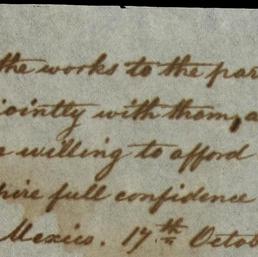 the works to the par
jointly with them, a
e willing to afford
pire full confidence
Mexico. 17th Octob